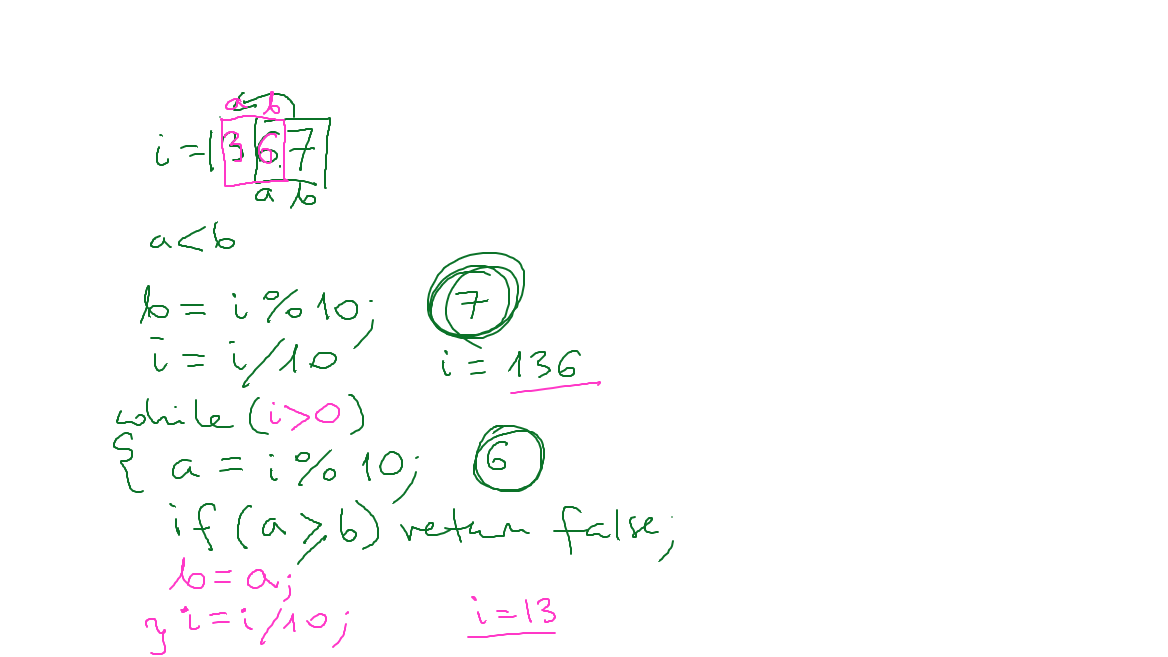 a b
i = 1367
a b
a < b
b = i % 10; 7
i = i / 10 i = 136
while (i > 0)
{ a = i % 10; 6
if (a ⩾ b) return false;
b = a;
} i = i / 10; i = 13